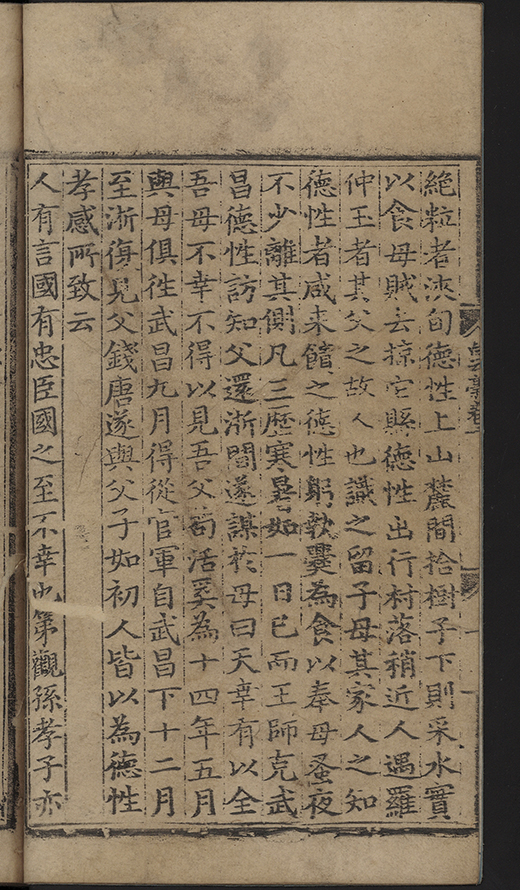 絶粒者浹旬德性上山麓間拾樹子下則采水實
以食母賊去掠它縣德性出行村落稍近人遇羅
仲玉者其父之故人也識之留子母其家人之知
德性者咸来饋之德性躬執爨為食以奉母蚤夜
不少離其側凡三歷寒暑如一日已而王師克武
昌德性訪知父還浙間遂謀於母曰天幸有以全
吾母不幸不得以見吾父苟活奚為十四年五月
與母俱徃武昌九月得從官軍自武昌下十二月
至浙復見父錢唐遂與父子如初人皆以為德性
孝感所致云
人有言國有忠臣國之至不幸也第觀孫孝子亦